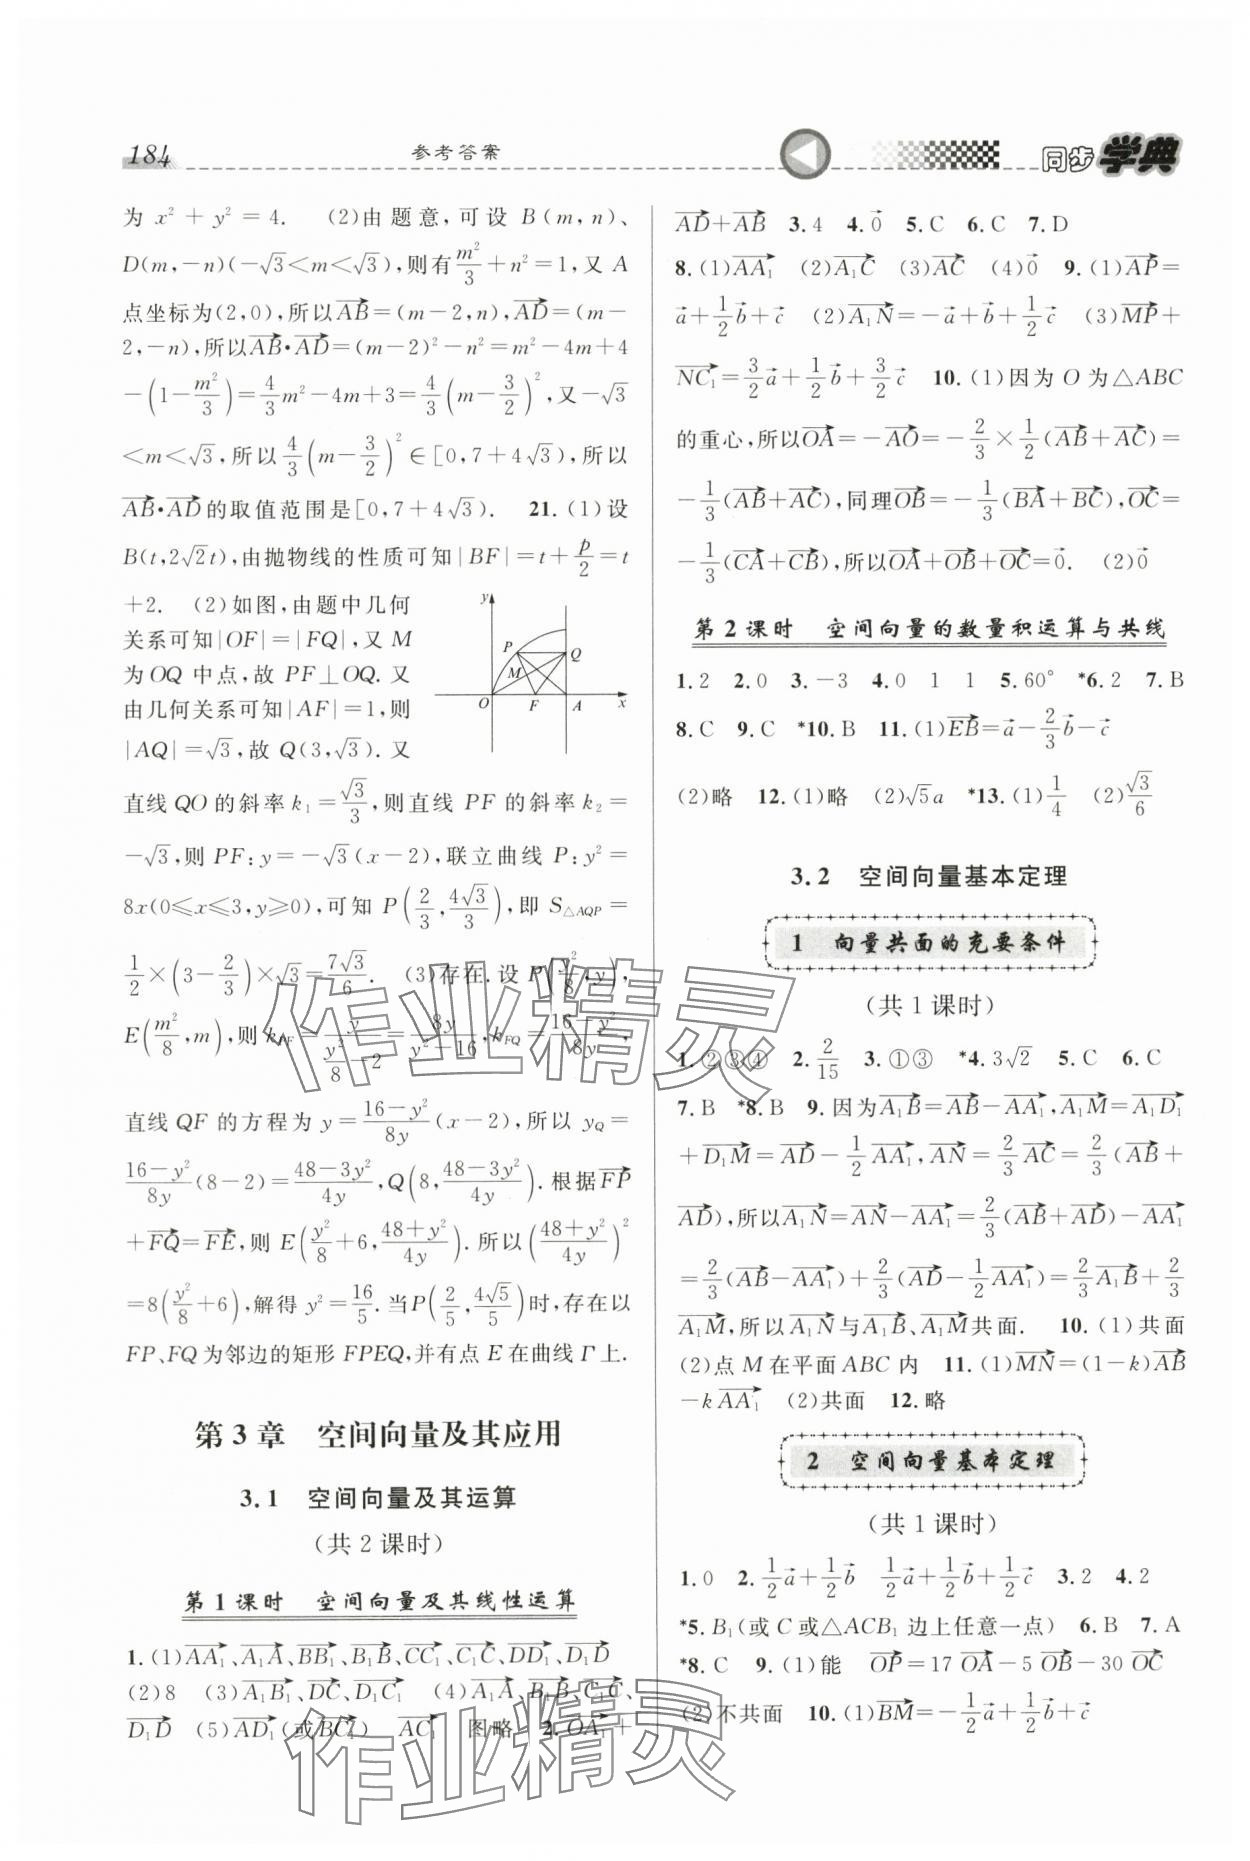 184
参考答案
同步学典
为 x² + y² = 4. (2)由题意,可设 B(m,n)、
D(m,-n)(-√3<m<√3),则有m²/3+n²=1,又 A
点坐标为(2,0),所以AB→=(m-2,n),AD→=(m-
2,-n),所以AB→·AD→=(m-2)²-n²=m²-4m+4
-(1-m²/3)=4/3m²-4m+3=4/3(m-3/2)²,又-√3
<m<√3,所以 4/3(m-3/2)²∈[0,7+4√3),所以
AB→·AD→的取值范围是[0,7+4√3). 21.(1)设
B(t,2√2t),由抛物线的性质可知|BF|=t+p/2=t
+2. (2)如图,由题中几何
关系可知|OF|=|FQ|,又 M
为OQ 中点,故 PF⊥OQ. 又
由几何关系可知|AF|=1,则
|AQ|=√3,故 Q(3,√3). 又
y
P
Q
M
O
F
A
x
直线 QO 的斜率 k₁=√3/3,则直线 PF 的斜率 k₂=
-√3,则 PF:y=-√3(x-2),联立曲线 P:y²=
8x(0≤x≤3,y≥0),可知 P(2/3,4√3/3),即 S△AQP=
1/2×(3-2/3)×√3=7√3/6. (3)存在.设 P(y²/8,y),
E(m²/8,m),则 kPF=y/(y²/8-2)=8y/(y²-16),kFQ=(16-y²)/8y,
直线 QF 的方程为 y=(16-y²)/8y(x-2),所以 yQ=
(16-y²)/8y(8-2)=(48-3y²)/4y,Q(8,(48-3y²)/4y).根据FP→
+FQ→=FE→,则 E(y²/8+6,(48+y²)/4y).所以((48+y²)/4y)²
=8(y²/8+6),解得 y²=16/5.当P(2/5,4√5/5)时,存在以
FP、FQ 为邻边的矩形 FPEQ,并有点 E 在曲线 Γ 上.
第 3 章 空间向量及其应用
3.1 空间向量及其运算
(共 2 课时)
第 1 课时 空间向量及其线性运算
1.(1)AA₁→、A₁A→、BB₁→、B₁B→、CC₁→、C₁C→、DD₁→、D₁D→
(2)8 (3)A₁B₁→、DC→、D₁C₁→ (4)A₁A→、B₁B→、C₁C→、
D₁D→ (5)AD₁→(或BC₁→) AC₁→ 图略 2.OA₁→+
AD→+AB→ 3.4 4.0→ 5.C 6.C 7.D
8.(1)AA₁→ (2)A₁C→ (3)AC→ (4)0→ 9.(1)AP→=
a→+1/2b→+c→ (2)A₁N→=-a→+b→+1/2c→ (3)MP→+
NC₁→=3/2a→+1/2b→+3/2c→ 10.(1)因为 O 为△ABC
的重心,所以OA→=-AO→=-2/3×1/2(AB→+AC→)=
-1/3(AB→+AC→),同理OB→=-1/3(BA→+BC→),OC→=
-1/3(CA→+CB→),所以OA→+OB→+OC→=0→. (2)0→
第 2 课时 空间向量的数量积运算与共线
1.2 2.0 3.-3 4.0 1 1 5.60° *6.2 7.B
8.C 9.C *10.B 11.(1)EB→=a→-2/3b→-c→
(2)略 12.(1)略 (2)√5a *13.(1)1/4 (2)√3/6
3.2 空间向量基本定理
1 向量共面的充要条件
(共 1 课时)
1.②③④ 2.2/15 3.①③ *4.3√2 5.C 6.C
7.B *8.B 9.因为A₁B→=AB→-AA₁→,A₁M→=A₁D₁→
+D₁M→=AD→-1/2AA₁→,AN→=2/3AC→=2/3(AB→+
AD→),所以A₁N→=AN→-AA₁→=2/3(AB→+AD→)-AA₁→
=2/3(AB→-AA₁→)+2/3(AD→-1/2AA₁→)=2/3A₁B→+2/3
A₁M→,所以A₁N→与A₁B→、A₁M→共面. 10.(1)共面
(2)点 M 在平面 ABC 内 11.(1)MN→=(1-k)AB→
-kAA₁→ (2)共面 12.略
2 空间向量基本定理
(共 1 课时)
1.0 2.1/2a→+1/2b→ 1/2a→+1/2b→+1/2c→ 3.2 4.2
*5.B₁(或 C 或△ACB₁ 边上任意一点) 6.B 7.A
*8.C 9.(1)能 OP→=17 OA→-5 OB→-30 OC→
(2)不共面 10.(1)BM→=-1/2a→+1/2b→+c→
作业精灵
作业精灵